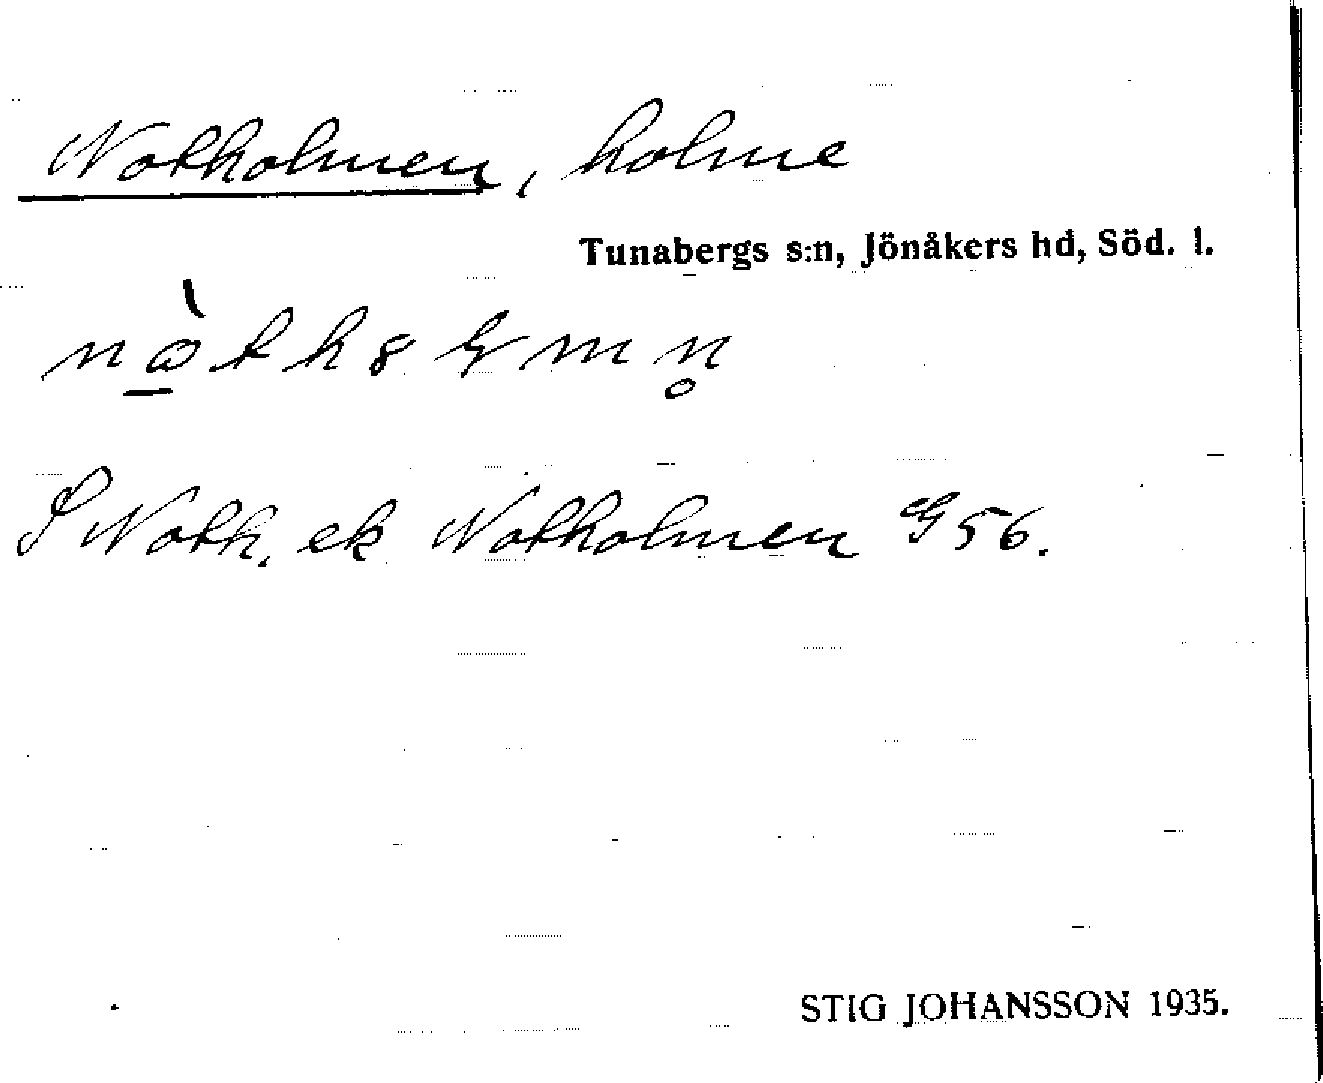 Notholmen, holme
Tunabergs s:n, Jönåkers hd, Söd. l.
S Noth. ek Notholmen G 56.
STIG JOHANSSON 1935.